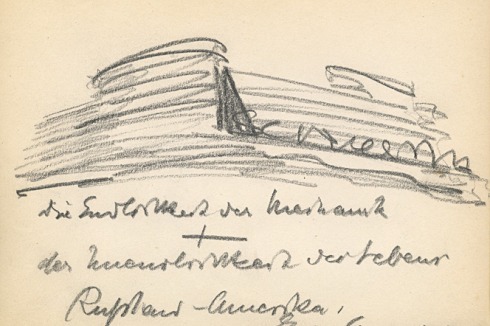 die Endlichkeit der Mechanik
+
der Unendlichkeit des Lebens
Rußland-Amerika,